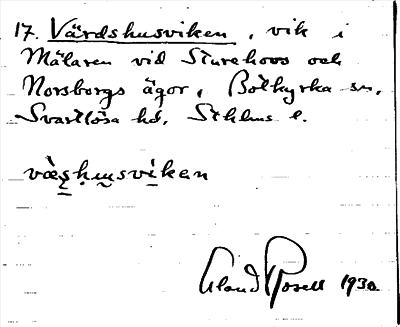 17. Värdshusviken, vik i
Mälaren vid Sturehovs och
Norsborgs ägor, Botkyrka sn,
Svartlösa hd, Sthlms l.
Claud Rosell 1930